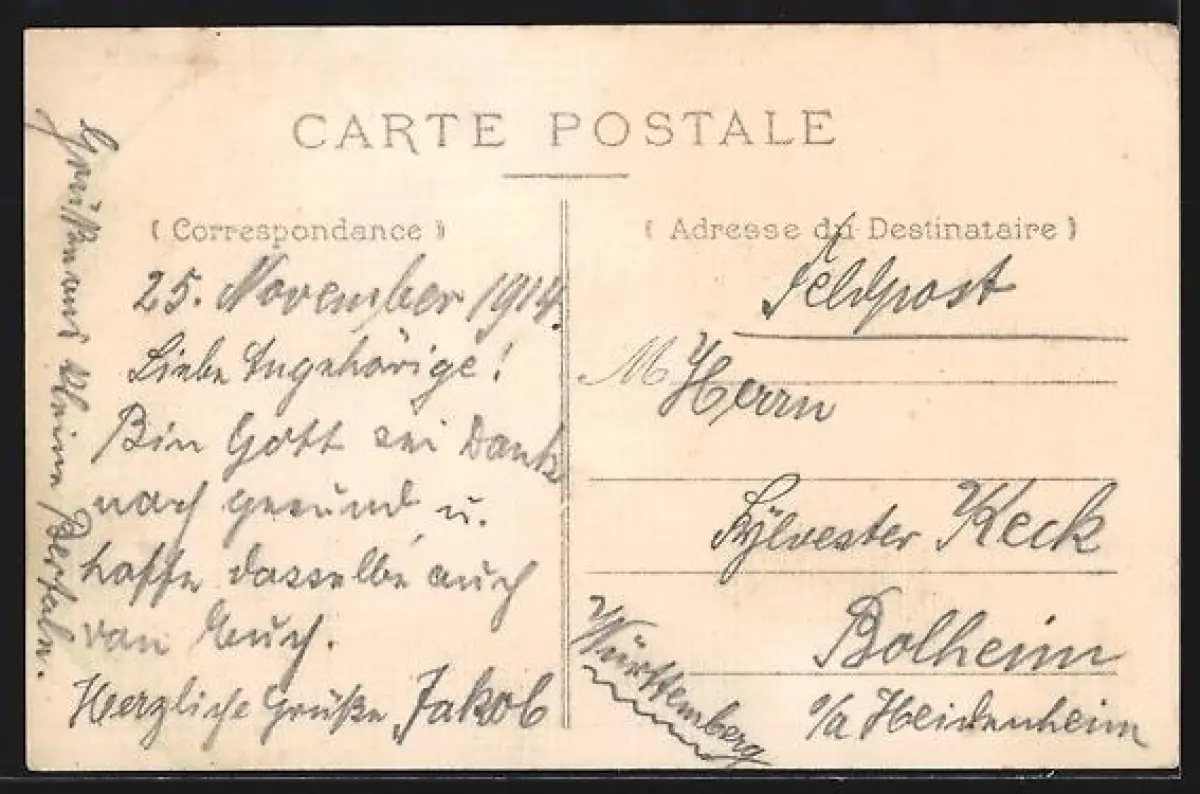 CARTE POSTALE
( Correspondance )
25. November 1914.
Liebe Angehörige!
Bin Gott sei Dank
noch gesund u.
hoffe dasselbe auch
von Euch.
Herzliche Grüße Jakob
( Adresse du Destinataire )
Feldpost
M Herrn
Sylvester Keck
Bolheim
o/a Heidenheim
Württemberg